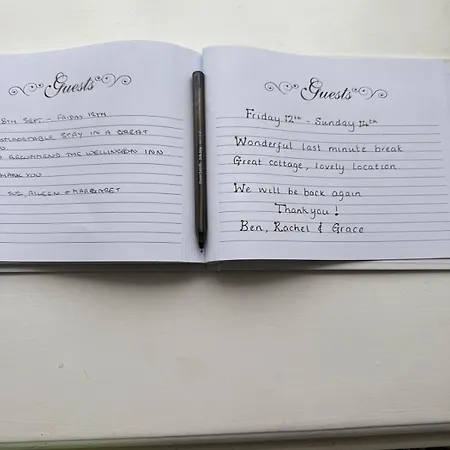 Guests
8TH SEPT - FRIDAY 12TH
STAY IN A GREAT
RECOMMEND THE WELLINGTON INN
THANK YOU
SUE, AILEEN & MARGARET
Guests
Friday 12th - Sunday 14th
Wonderful last minute break
Great cottage, lovely location
We will be back again
Thankyou!
Ben, Rachel & Grace